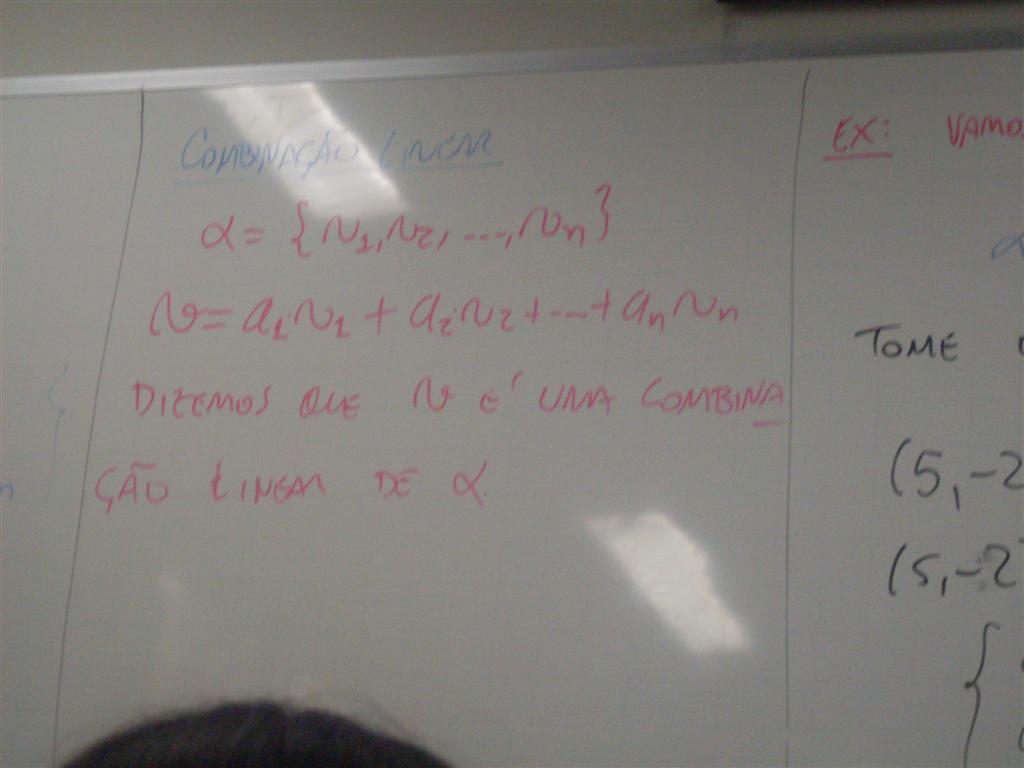 COMBINAÇÃO LINEAR
α = {v₁, v₂, ..., vₙ}
v = a₁·v₁ + a₂·v₂ + ... + aₙvₙ
DIZEMOS QUE v É UMA COMBINA
ÇÃO LINEAR DE α.
EX: VAMO
α
TOME
(5, -2
(5, -2
{